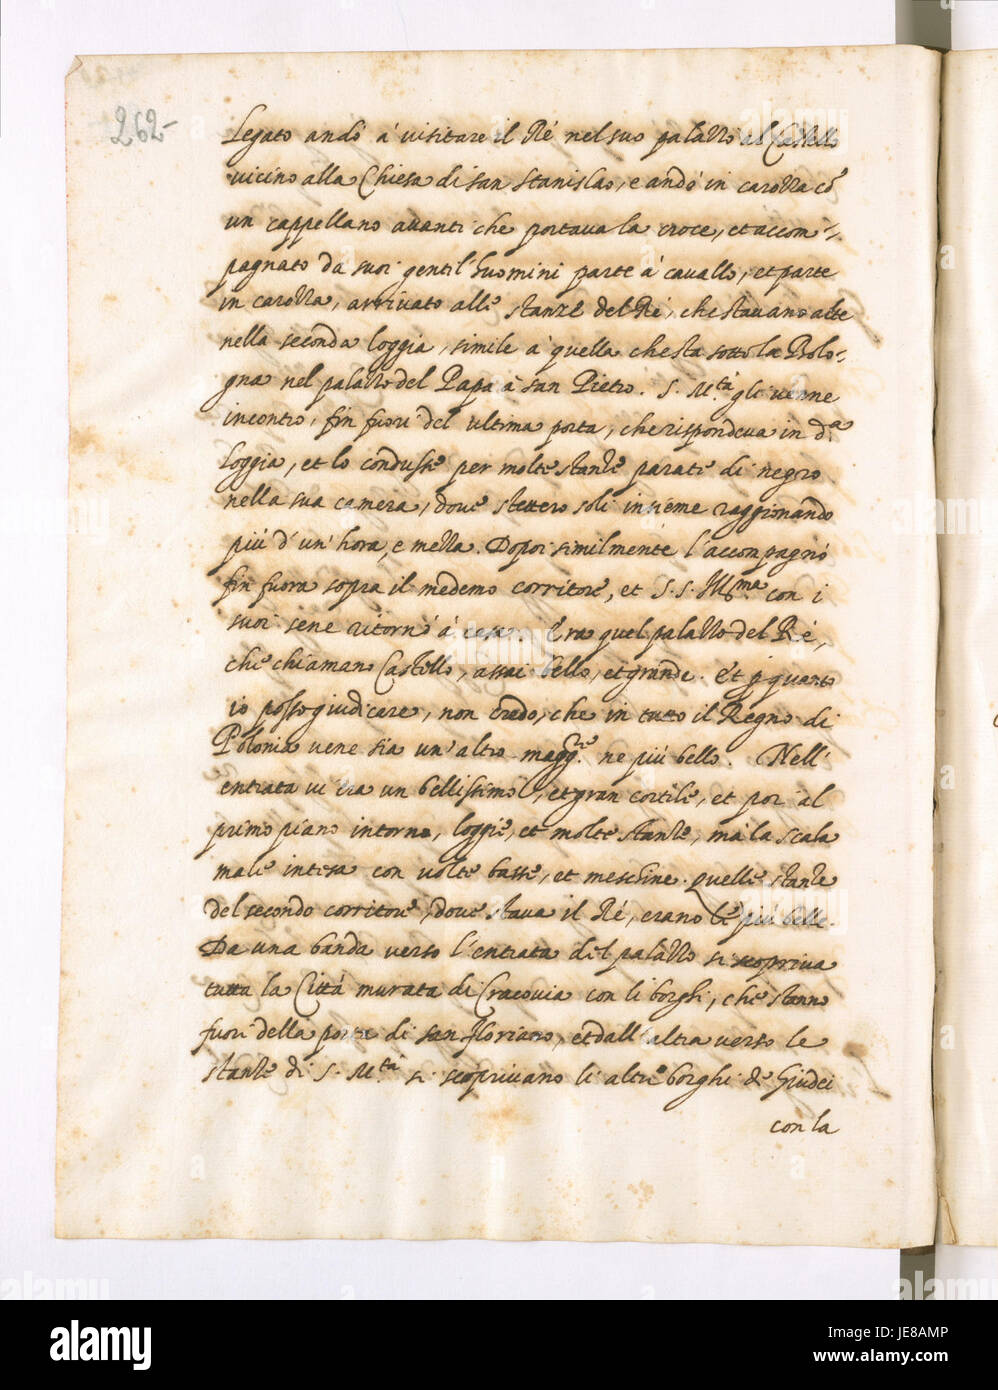 262-
Legato andò à visitare il Rè nel suo palazzo al Castello
vicino alla Chiesa di san Stanislao, e andò in carozza cõ
un cappellano avanti che portava la croce, et accom-
pagnato da suoi gentil'huomini parte à cavallo, et parte
in carozza, arrivato alle stanze del Rè, che stavano alte
nella seconda loggia, simile à quella che sta sotto la Bolo-
gna nel palazzo del Papa à san Pietro. S. M.tà gli venne
incontro, fin fuori del ultima porta, che rispondeva in d.a
loggia, et lo condusse per molte stanze parate di negro
nella sua camera, dove stettero soli insieme raggionando
più d'un'hora, e mezza. Dopoi similmente l'accompagnò
fin fuora sopra il medemo corritore, et S. S. Ill.ma con i
suoi sene ritornò à casa. Era quel palazzo del Rè,
che chiamano Castello, assai bello, et grande. et p quanto
io posso giudicare, non credo, che in tutto il Regno di
Polonia vene sia un'altro magg.re ne più bello. Nell'
entrata vi era un bellissimo, et gran cortile, et poi al
primo piano intorno, loggie, et molte stanze, mà la scala
male intesa con volte basse, et meschine. quelle stanze
del secondo corritore, dove stava il Rè, erano le più belle.
Da una banda verso l'entrata del palazzo si scopriva
tutta la Città murata di Cracovia con li borghi, che stanno
fuori della porta di san Floriano, et dall'altra verso le
stanze di S. M.tà si scoprivano li altri borghi de Giudei
con la
alamy
Image ID: JE8AMP
www.alamy.com